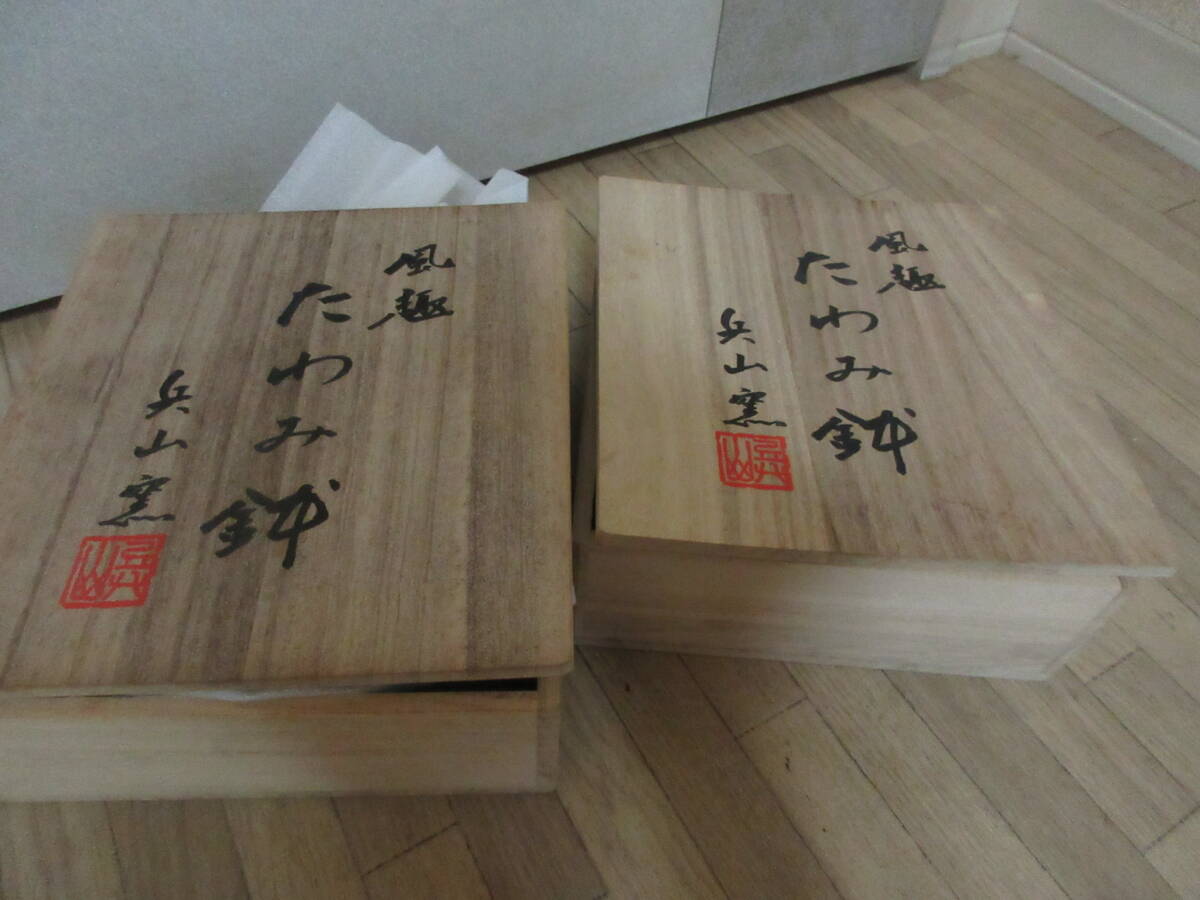 風趣
たわみ鉢
兵山窯
兵山
風趣
たわみ鉢
兵山窯
兵山